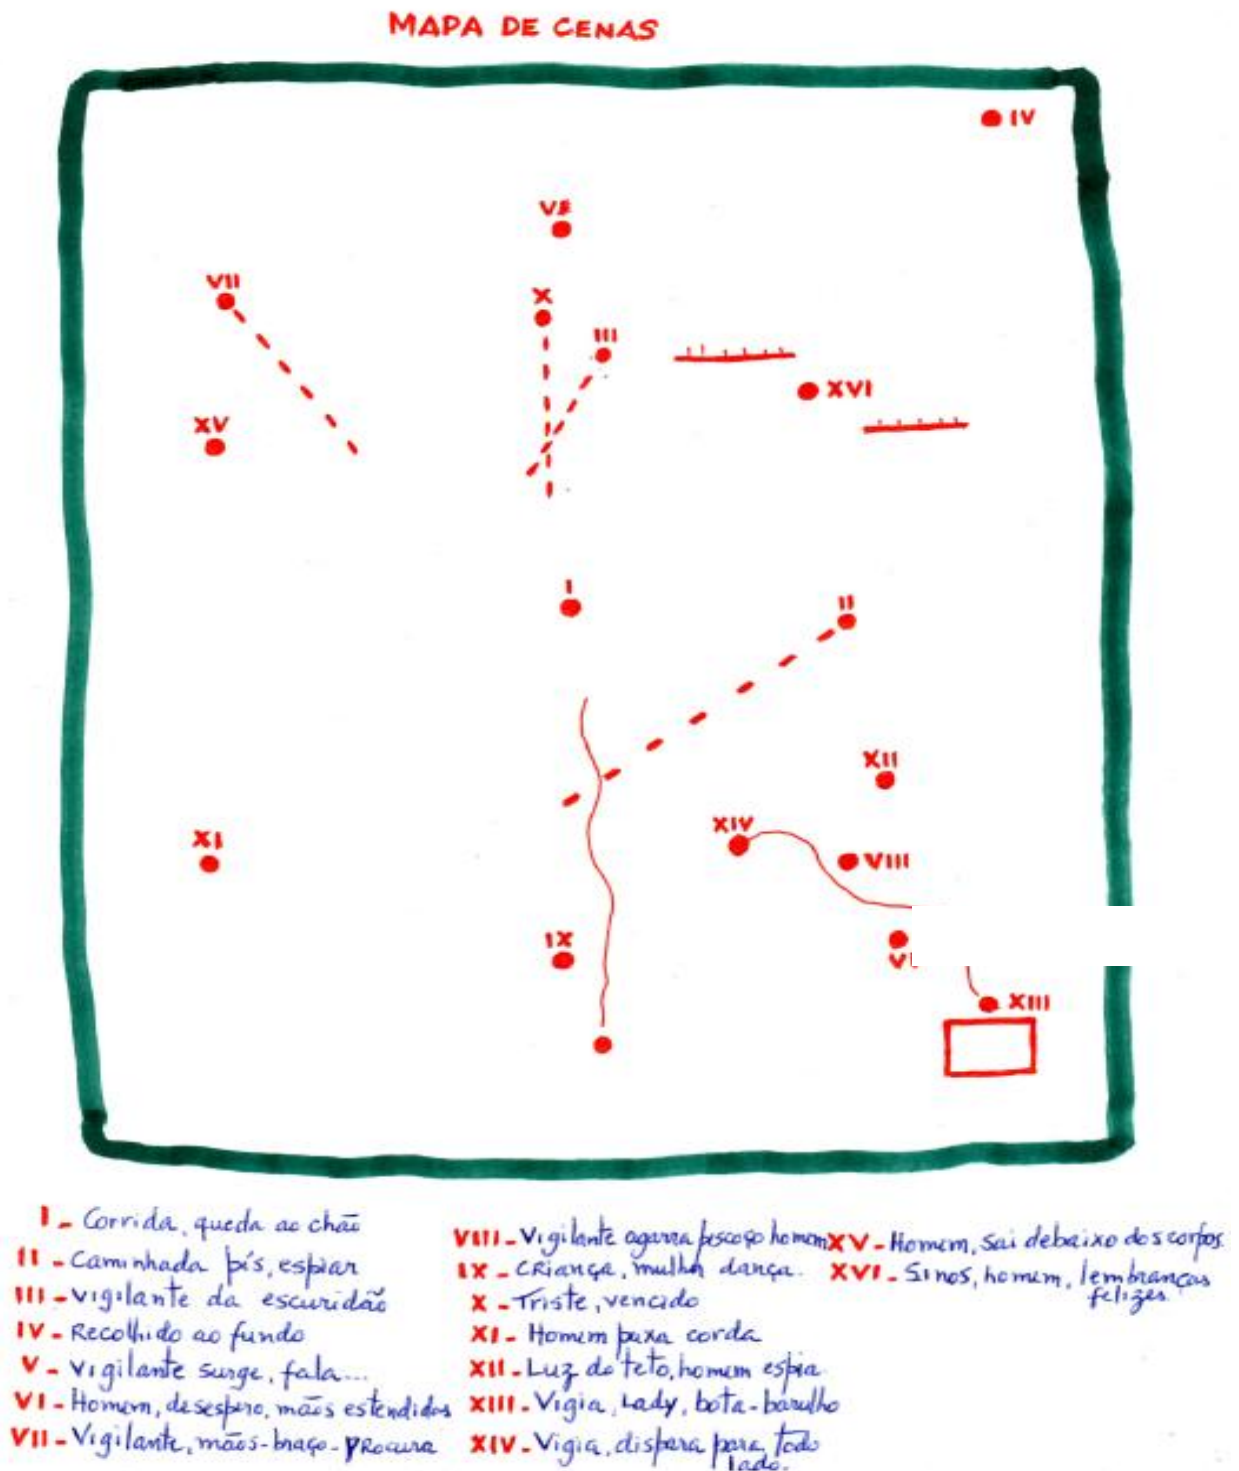 MAPA DE CENAS
IV
VII
X
III
XVI
XV
I
II
XII
XIV
XI
VIII
IX
XIII
I - Corrida, queda ao chão
II - Caminhada pés, espiar
III - Vigilante da escuridão
IV - Recolhido ao fundo
V - Vigilante surge, fala...
VI - Homem, desespero, mãos estendidas
VII - Vigilante, mãos-braço-procura
VIII - Vigilante agarra pescoço homem
IX - Criança, mulher dança.
X - Triste, vencido
XI - Homem puxa corda
XII - Luz do teto, homem espia
XIII - Vigia, Lady, bota-barulho
XIV - Vigia, dispara para todo
lado.
XV - Homem, sai debaixo dos corpos
XVI - Sinos, homem, lembranças
felizes